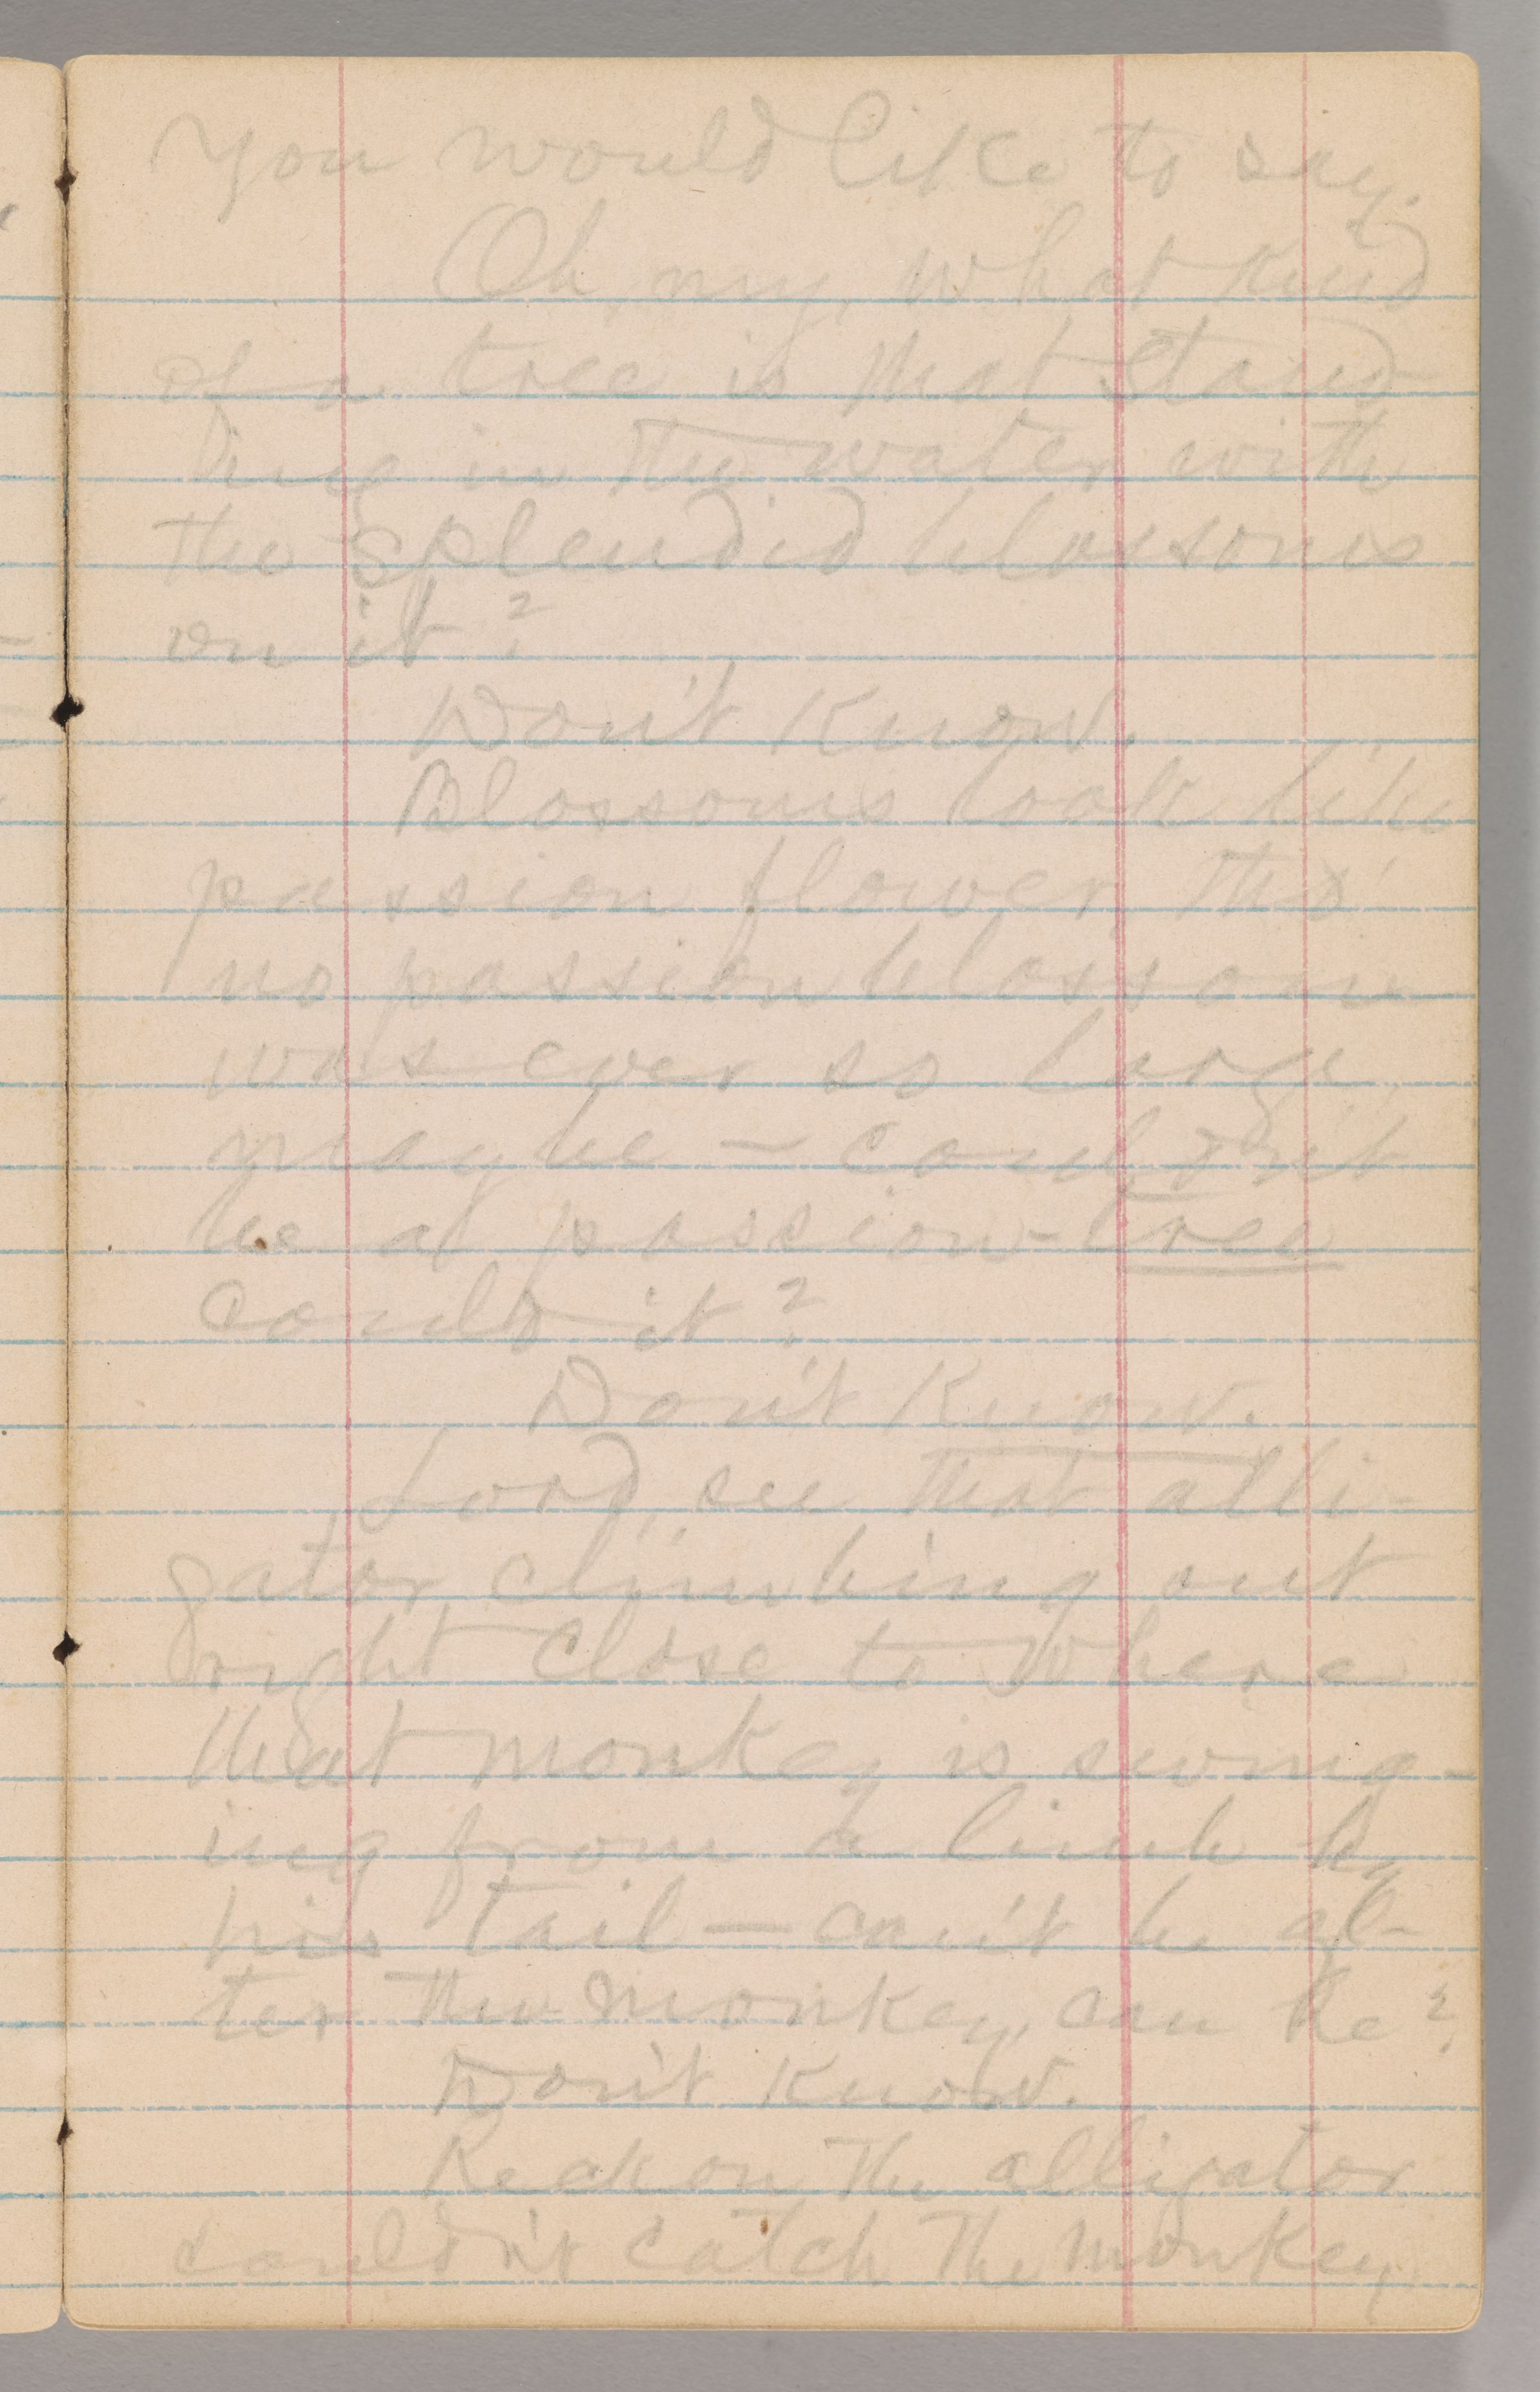 you would like to say.
Oh, my, what kind
of a tree is that stand-
ing in the water with
the splendid blossoms
on it?
Don't know.
Blossoms look like
passion flower, tho'
no passion blossom
was ever so large,
maybe — couldn't
be a passion-tree
could it?
Don't know.
Lord, see that alli-
gator climbing out
right close to where
that monkey is swing-
ing from a limb by
his tail — can't be af-
ter the monkey, can he?
Don't know.
Reckon the alligator
couldn't catch the monkey